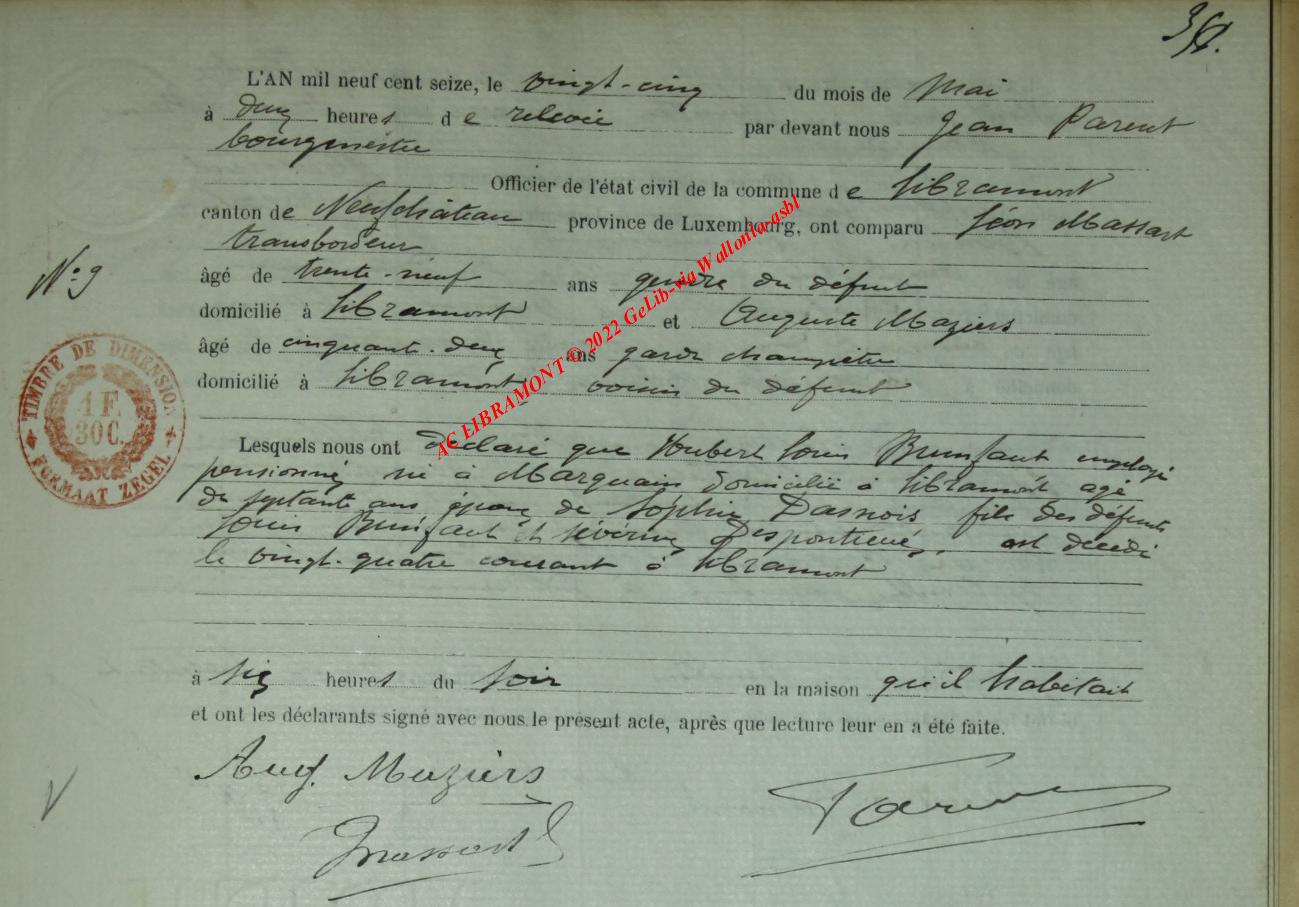 L'AN mil neuf cent seize, le vingt-cinq du mois de Mai
à deux heures de relevée par devant nous Jean Parent
bourgmestre
Officier de l'état civil de la commune de Libramont
canton de Neufchâteau province de Luxembourg, ont comparu Léon Massart
transbordeur
N° 9
âgé de trente-neuf ans gendre du défunt
domicilié à Libramont et Auguste Maziers
âgé de cinquante-deux ans garde champêtre
domicilié à Libramont voisin du défunt
TIMBRE DE DIMENSION
1 F.
30 C.
FORMAAT ZEGEL
AC LIBRAMONT © 2022 GeLib-via Wallonia-asbl
Lesquels nous ont déclaré que Hubert Louis Brunfaut employé
pensionné né à Marquain domicilié à Libramont agé
de septante ans époux de Sophie Dasnois fils des défunts
Louis Brunfaut et Séverine est décédé
le vingt-quatre courant à Libramont
à six heures du soir en la maison qu'il habitait
et ont les déclarants signé avec nous le présent acte, après que lecture leur en a été faite.
Aug. Maziers
Massart L
Parent